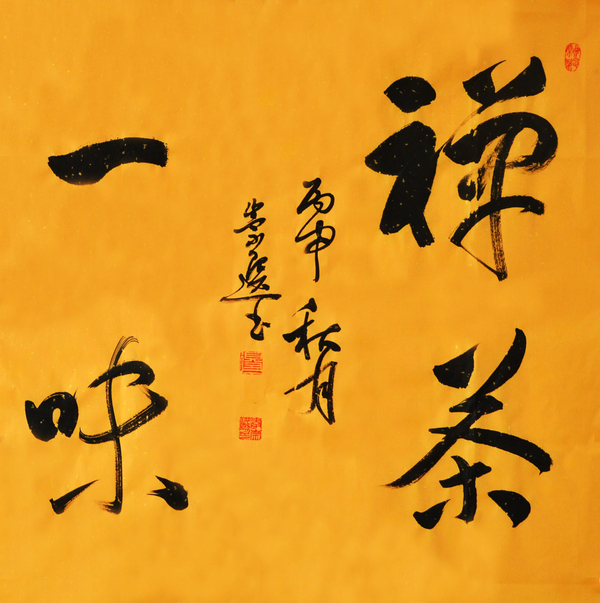 禅茶
一味
丙申秋月